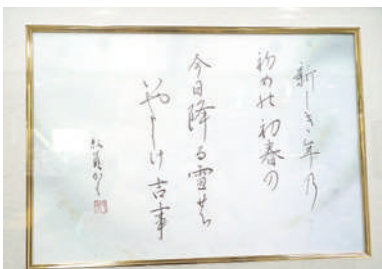 新しき年乃
初めの初春の
今日降る雪の
いやしけ吉事